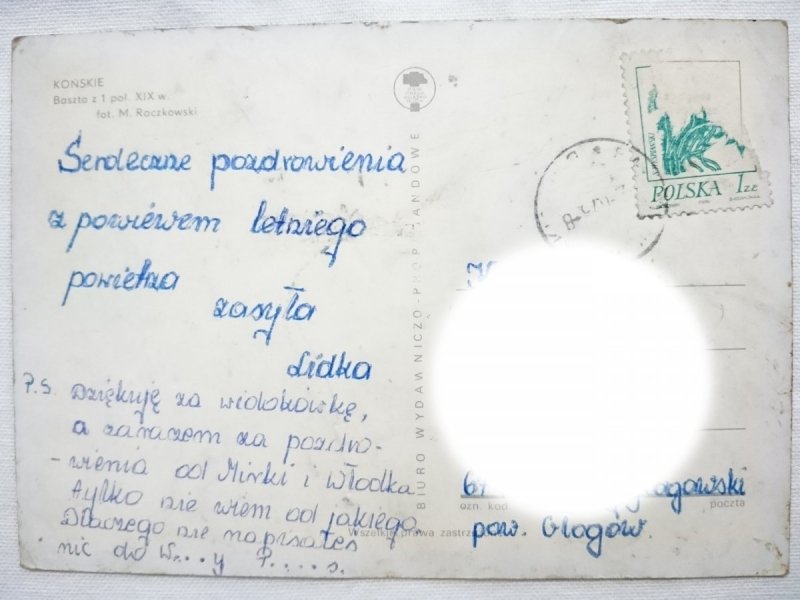 KOŃSKIE
Baszta z 1 poł. XIX w.
fot. M. Raczkowski
Serdeczne pozdrowienia
z powiewem letniego
powietrza
zasyła
Lidka
P.S. Dziękuję za widokówkę,
a zarazem za pozdro-
-wienia od Mirki i Włodka
Tylko nie wiem od jakiego
Dlaczego nie napisałeś
nic do W...y P.....s.
BIURO WYDAWNICZO-PROPAGANDOWE
POLSKA 1 ZŁ
67
głogowski
ozn. kod
poczta
pow. Głogów.
Wszelkie prawa zastrz